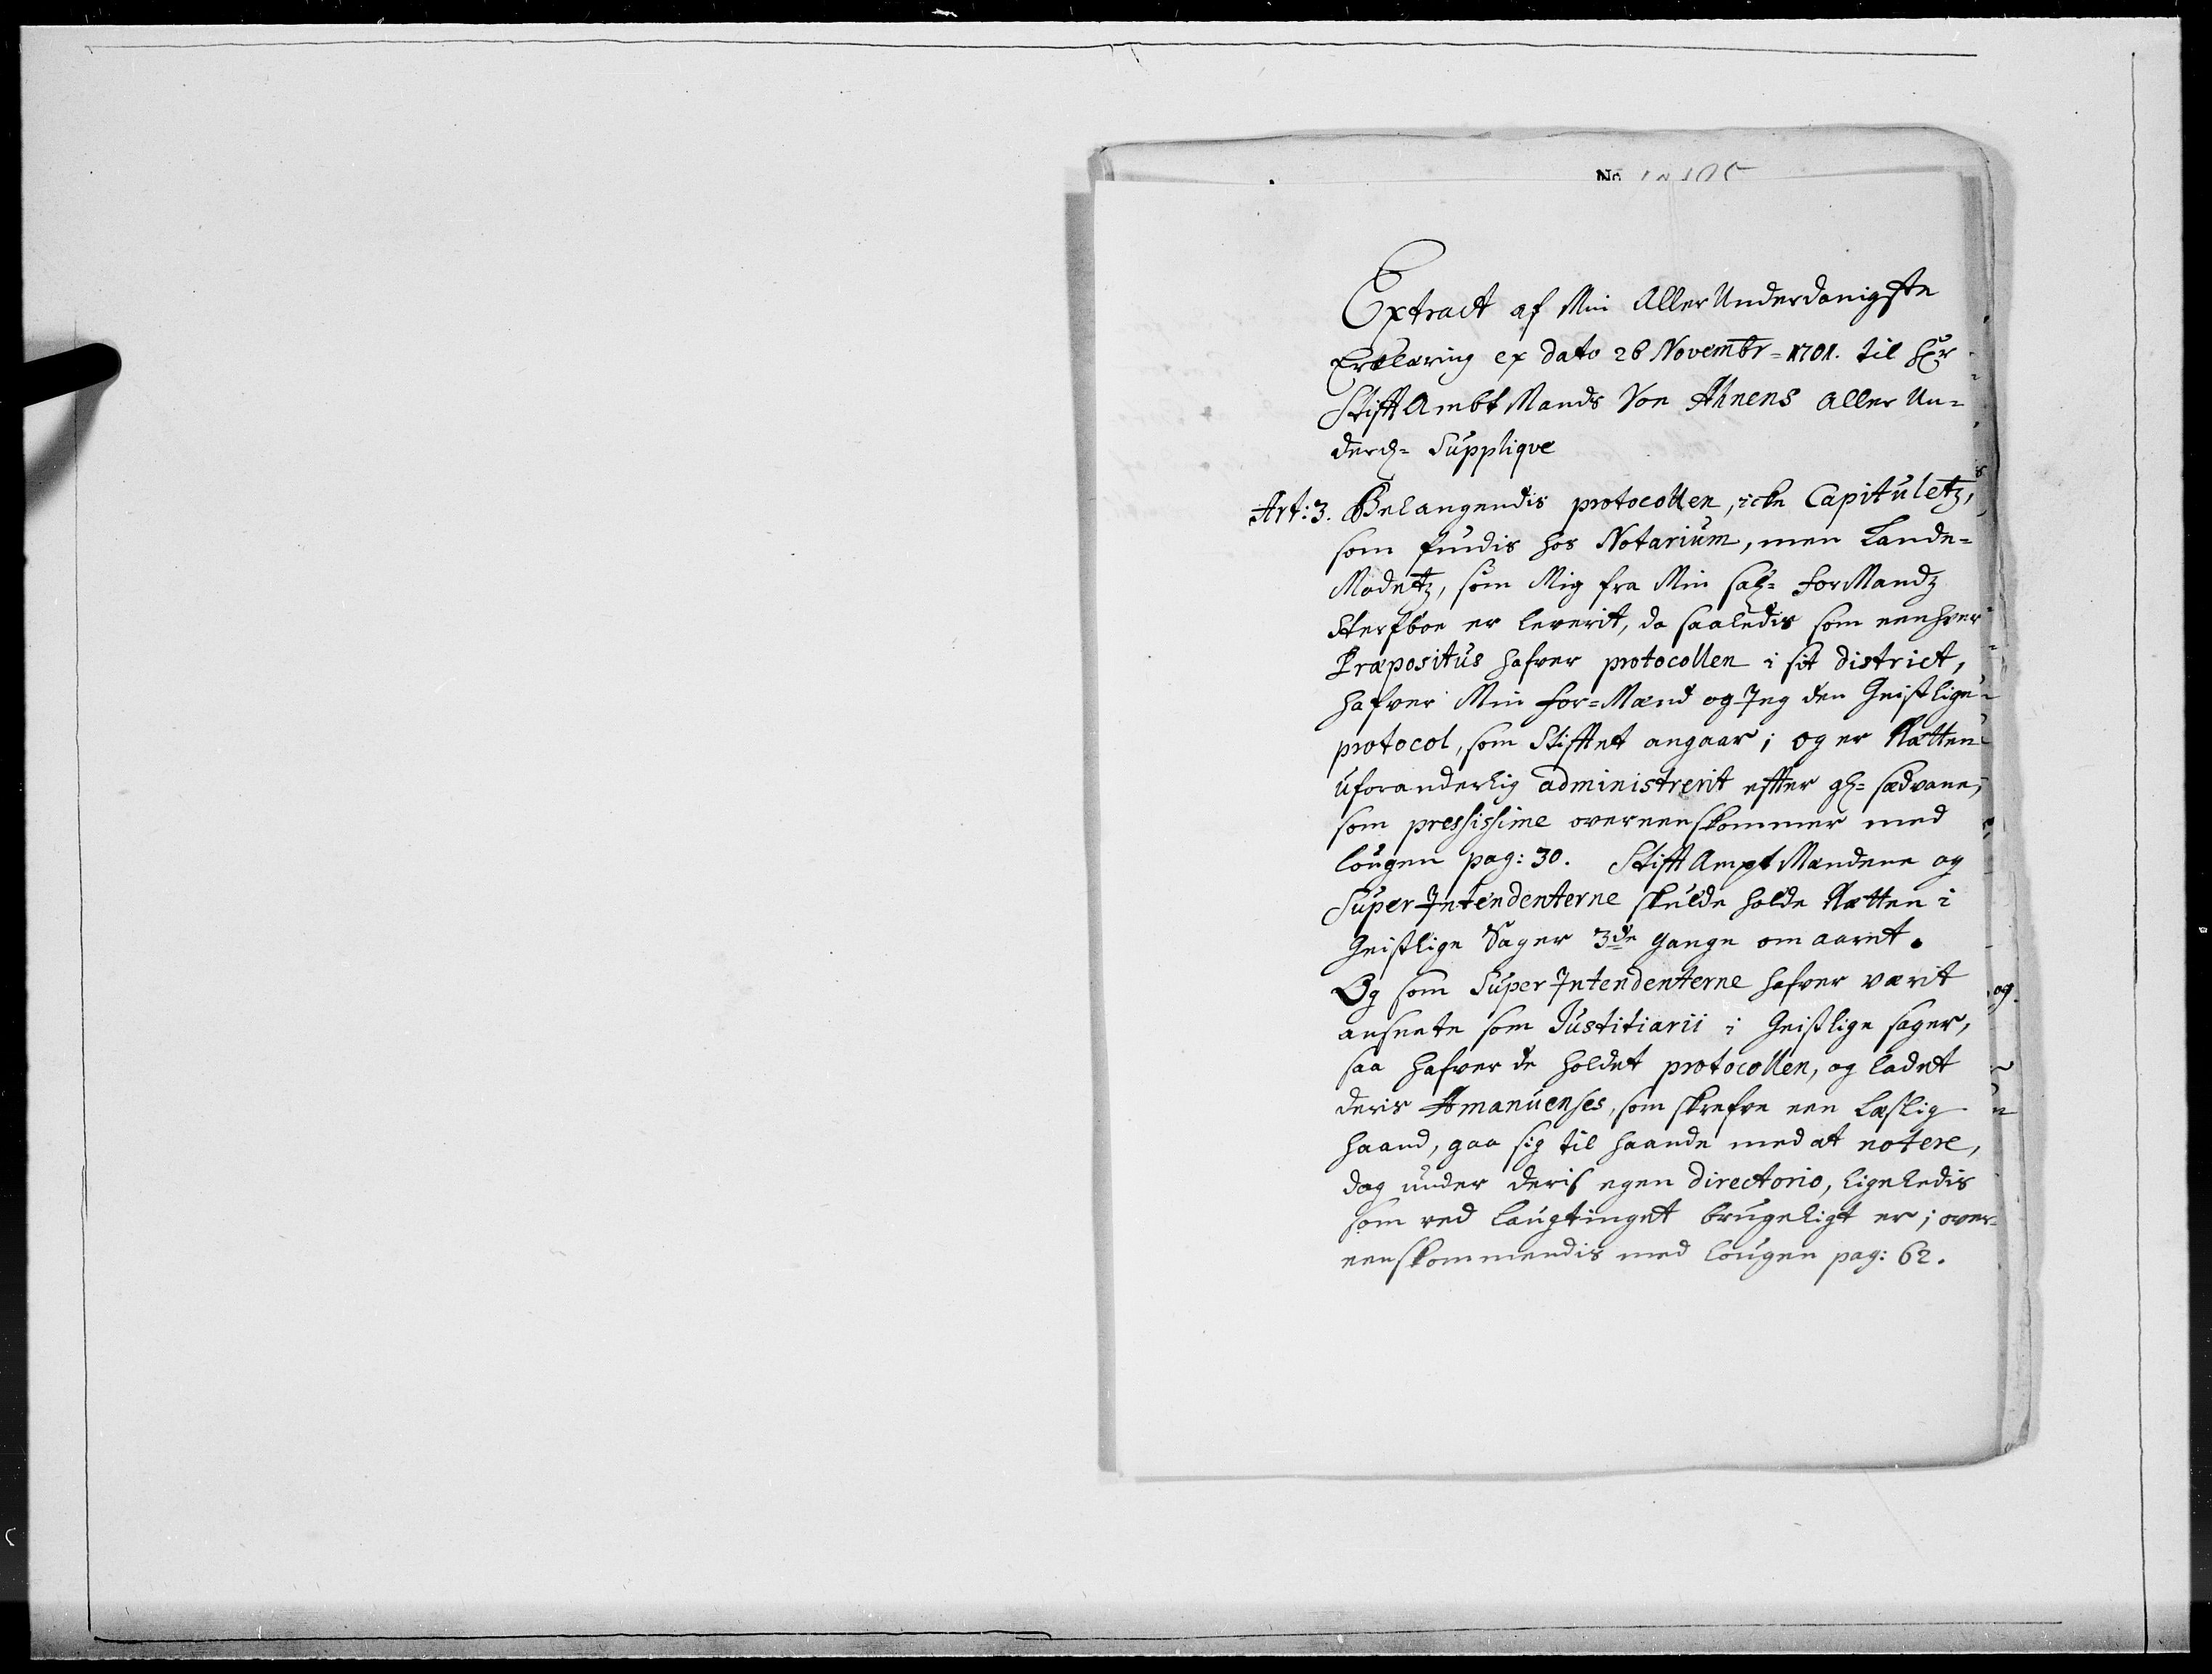 Extract af Min Aller Underdanigste
Erklæring ex dato 26 Novembr= 1701. til Hr
Stifft Ambt Mands Von Ahnens Aller Un=
derd= Supplique
Art: 3. Belangendis protocollen, icke Capituletz,
som findis hos Notarium, men Lande=
Modetz, som Mig fra Min sal= for Mandz
Sterfboe er leverit, da saaledis som eenhver
Præpositus hafver protocollen i sit district,
hafver Min for=Mand og Jeg den Geistlige
protocol, som Stifftet angaar; og er Rætten
uforanderlig administrerit effter gl= sædvane,
som pressissime overeenskommer med
lougen pag: 30. Stifft Ampt Mændene og
Super Intendenterne skulde holde Rætten i
Geistlige Sager 3de gange om aaret.
Og som Super Intendenterne hafver værit
anseete som Justitiarii i Geistlige sager,
saa hafver de holdet protocollen, og ladet
deris Amanuenses, som skrefve een Læslig
haand, gaa sig til haande med at notere,
dog under deris egen directorio, ligeledis
som ved laugtinget brugeligt er; over=
eenskommendis med lougen pag: 62.
og